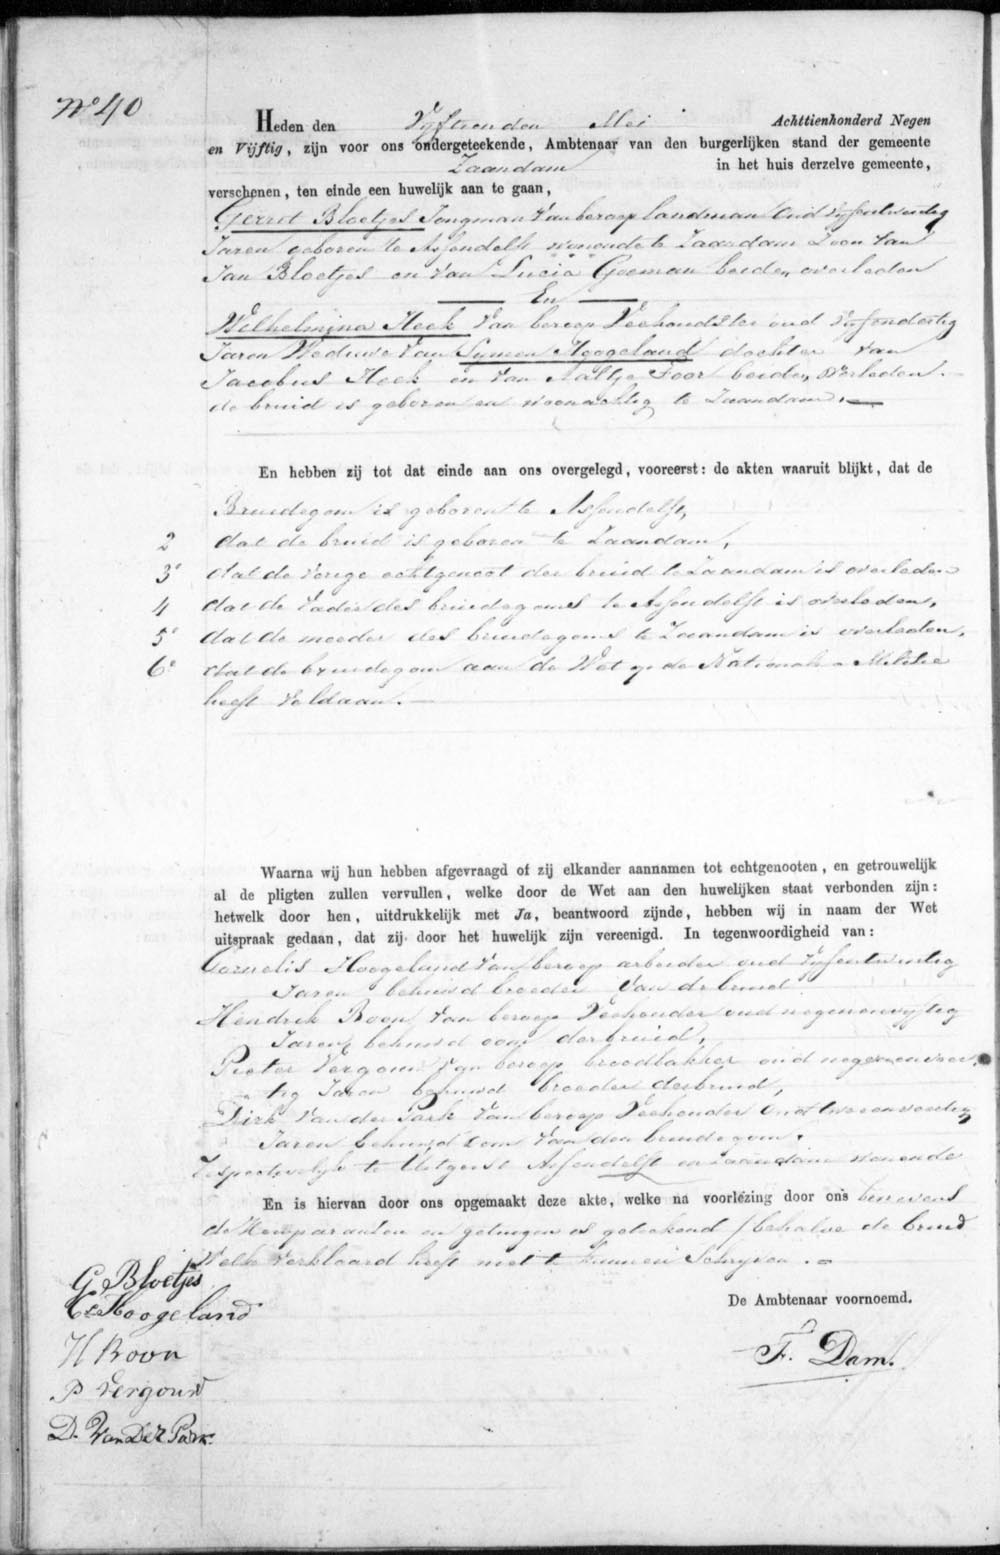 No 40
Heden den Vyftienden Mei Achttienhonderd Negen
en Vijftig, zijn voor ons ondergeteekende, Ambtenaar van den burgerlijken stand der gemeente
Zaandam in het huis derzelve gemeente,
verschenen, ten einde een huwelijk aan te gaan,
Gerrit Bloetjes Jongman Van beroep landman Oud Vyfentwintig
Jaren geboren te Assendelft wonende te Zaandam Zoon Van
Jan Bloetjes en Van Lucia Goeman beiden overleden
En
Welhelmina Heek Van beroep Veehoudster oud Vyfendertig
Jaren Weduwe Van Symon Hoogeland dochter Van
Jacobus Heek en Van Aaltje Door beiden overleden.
de bruid is geboren en woonachtig te Zaandam.
En hebben zij tot dat einde aan ons overgelegd, vooreerst: de akten waaruit blijkt, dat de
Bruidegom is geboren te Assendelft,
2 dat de bruid is geboren te Zaandam,
3o dat de Vorige echtgenoot der bruid te Zaandam is overleden
4 dat de Vader des bruidegoms te Assendelft is overleden,
5o dat de moeder des bruidegoms te Zaandam is overleden,
6o dat de bruidegom aan de Wet op de Nationale Militie
heeft Voldaan.
Waarna wij hun hebben afgevraagd of zij elkander aannamen tot echtgenooten, en getrouwelijk
al de pligten zullen vervullen, welke door de Wet aan den huwelijken staat verbonden zijn:
hetwelk door hen, uitdrukkelijk met Ja, beantwoord zijnde, hebben wij in naam der Wet
uitspraak gedaan, dat zij door het huwelijk zijn vereenigd. In tegenwoordigheid van:
Cornelis Hoogeland Van beroep arbeider oud Vyfentwintig
Jaren behuwd broeder Van de bruid
Hendrik Roon Van beroep Veehouder oud negenenvyftig
Jaren behuwd oom der bruid,
Pieter Vergouw Van beroep broodbakker oud negenenveer
tig Jaren behuwd broeder der bruid,
Dirk Van der Park Van beroep Veehouder Oud tweeenveertig
Jaren behuwd oom Van den bruidegom.
Respectivelyk te Uitgeest Assendelft en Zaandam wonende
En is hiervan door ons opgemaakt deze akte, welke na voorlezing door ons benevens
de Komparanten en getuigen is geteekend / behalve de bruid
Welk Verklaard heeft niet te kunnen Schryven.
G. Bloetjes
C. Hoogeland
H Roon
P Vergouw
D. Van Der Park.
De Ambtenaar voornoemd.
F. Dam.